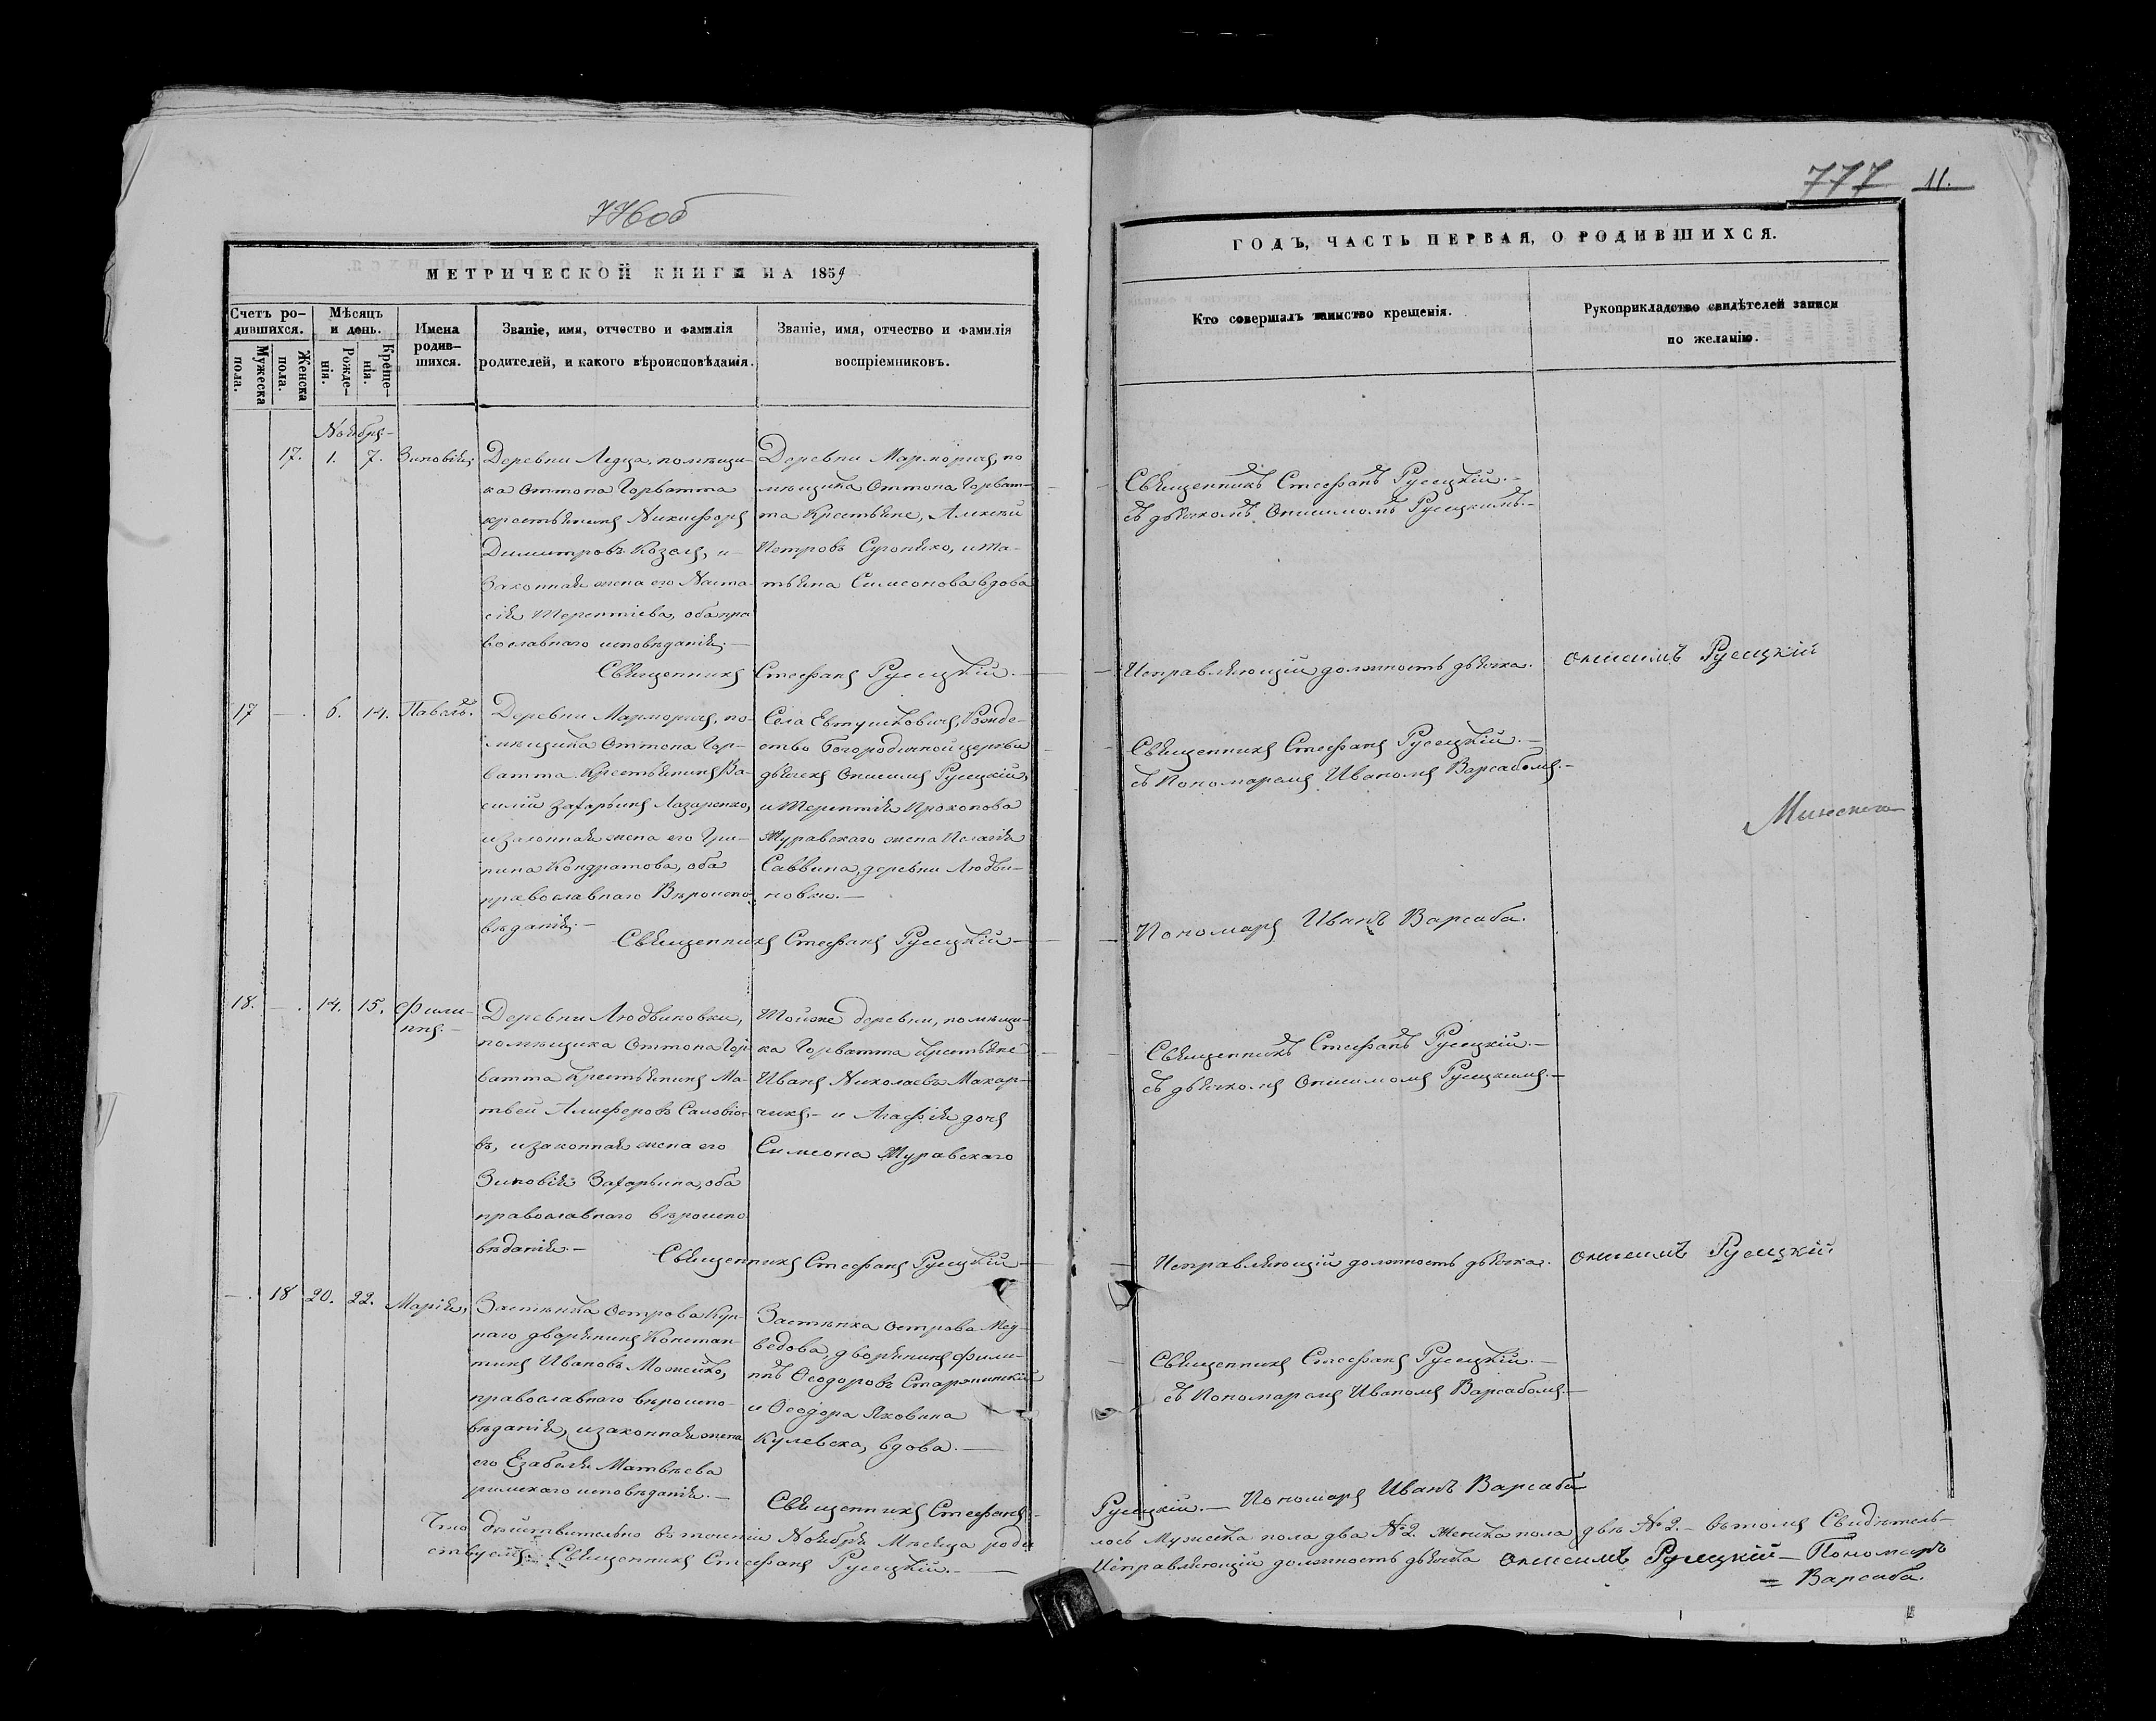 776об
МЕТРИЧЕСКОЙ КНИГИ НА 1859
Счетъ ро-
дившихся.
Мѣсяцъ
и день.
Мужеска
пола.
Женска
пола.
Рожде-
нія.
Креще-
нія.
Имена
родив-
шихся.
Званіе, имя, отчество и фамилія
родителей, и какого вѣроисповѣданія.
Званіе, имя, отчество и фамилія
воспріемниковъ.
Ноября
17. 1. 7. Зиновія,
Деревни Ледца, помѣщи-
ка Оттона Горватта
крестьянинъ Никифоръ
Димитровъ Козелъ, и
Законная жена его Наста-
сія Терентіева, оба пра
вославнаго исповѣданія.
Деревни Марморичъ, по
мѣщика Оттона Горват-
та Крестьяне, Алексѣй
Петровъ Сугоняко, и Та-
тьяна Симеонова вдова
Священникъ Стефанъ Русецкій.
17 — 6. 14. Павелъ.
Деревни Марморичъ, по-
мѣщика Оттона Гор-
ватта Крестьянинъ Ва-
силій Захарьинъ Лазаренко,
и законная жена его Гри-
пина Кондратова, оба
православнаго Вѣроиспо-
вѣданія.
Села Евтушковичъ, Рожде-
ство Богородичной церкви
дьячекъ Онисимъ Русецкій,
и Терентія Прокопова
Журавскаго жена Пелагія
Саввина, деревни Людви-
новки.
Священникъ Стефанъ Русецкій
18. — 14. 15. Фили-
ппъ.
Деревни Людвиновки,
помѣщика Оттона Гор-
ватта Крестьянинъ Ма-
твей Алиферовъ Саловіо-
въ, и законная жена его
Зиновія Захарьина, оба
православнаго вѣроиспо
вѣданія.
Той же деревни, помѣщи-
ка Горватта Крестьяне
Иванъ Николаевъ Макар-
чикъ, и Агафія дочь
Симеона Журавскаго
Священникъ Стефанъ Русецкій
— 18 20. 22. Марія,
Застѣнка Острова Куп-
наго дворянинъ Констан-
тинъ Ивановъ Можейко,
православнаго вѣроиспо-
вѣданія, и законная жена
его Езабеля Матвѣева
римскаго исповѣданія.
Застѣнка Острова Мед-
ведова, дворянинъ Фили-
ппъ Ѳеодоровъ Старжинскій
и Ѳеодора Яковина
Кулевска, вдова.
Священникъ Стефанъ
Что дѣйствительно въ теченіи Ноября Мѣсяца роди
ствуемъ. Священникъ Стефанъ Русецкій.
777 11.
ГОДЪ, ЧАСТЬ ПЕРВАЯ, О РОДИВШИХСЯ.
Кто совершалъ таинство крещенія.
Рукоприкладство свидѣтелей записи
по желанію.
Священникъ Стефанъ Русецкій.
съ дьячкомъ Онисимомъ Русецкимъ.
Исправляющій должность дьячка. Онисимъ Русецкій
Священникъ Стефанъ Русецкій.
съ Пономаремъ Иваномъ Варсабомъ.
Минскаго
Пономарь Иванъ Варсаба.
Священникъ Стефанъ Русецкій.
съ дьячкомъ Онисимомъ Русецкимъ.
Исправляющій должность дьячка. Онисимъ Русецкій
Священникъ Стефанъ Русецкій.
съ Пономаремъ Иваномъ Варсабомъ.
Русецкій. Пономарь Иванъ Варсаба
лось Мужеска пола два № 2. Женска пола двѣ № 2. въ томъ Свидѣтель-
Исправляющій должность дьячка Онисимъ Русецкій — Пономарь
Варсаба.